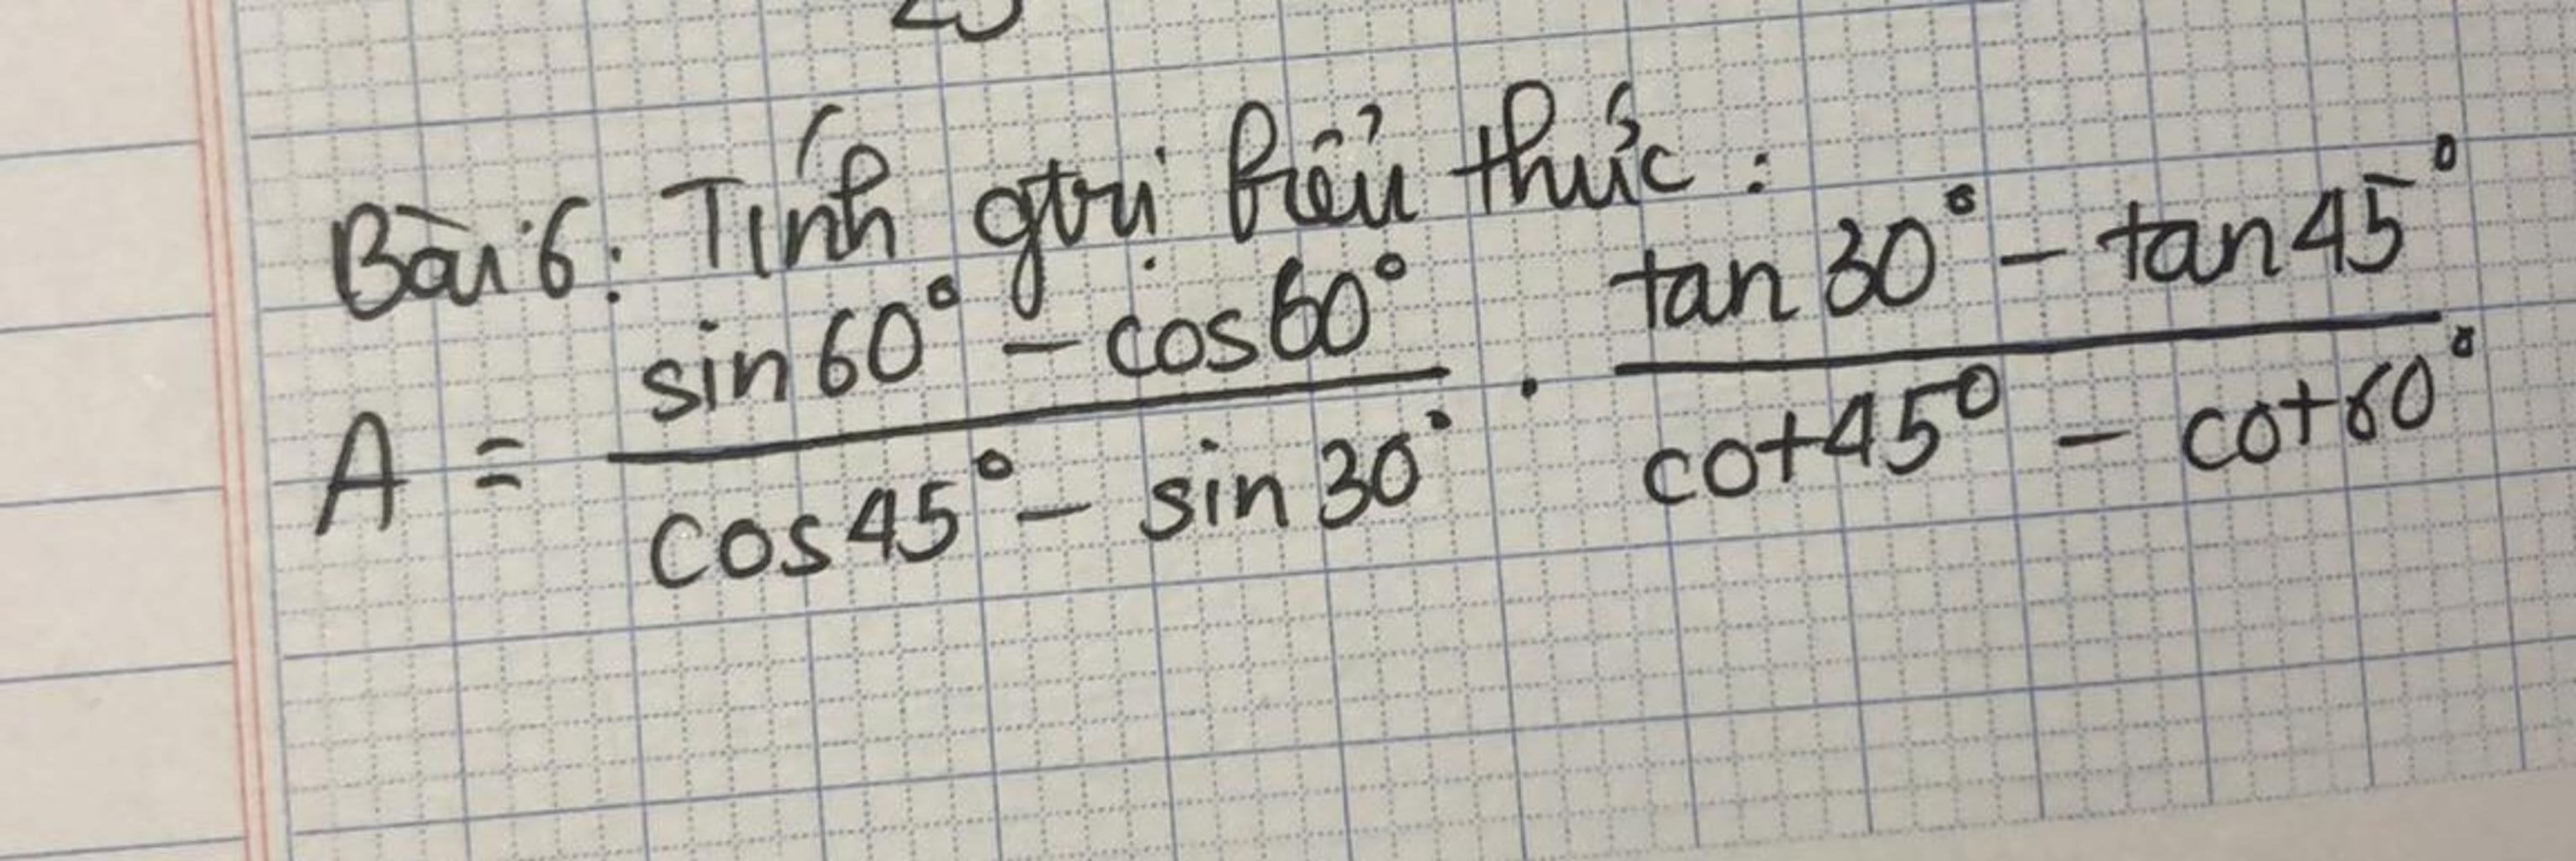 Bài 6: Tính gtrị biểu thức:
A = \frac{sin 60° - cos 60°}{cos 45° - sin 30°} . \frac{tan 30° - tan 45°}{cot 45° - cot 60°}